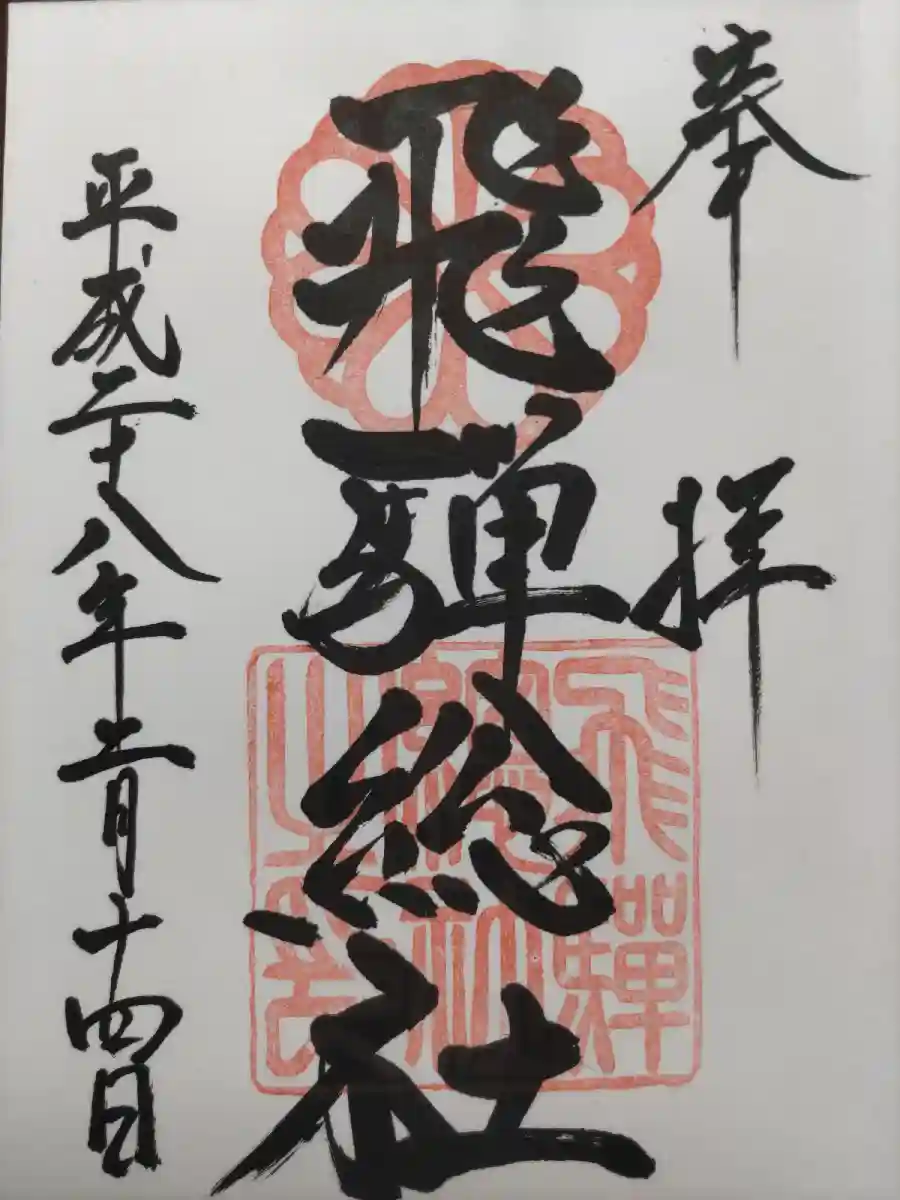 奉拝
飛騨総社
飛騨総社之印
平成二十八年二月十四日